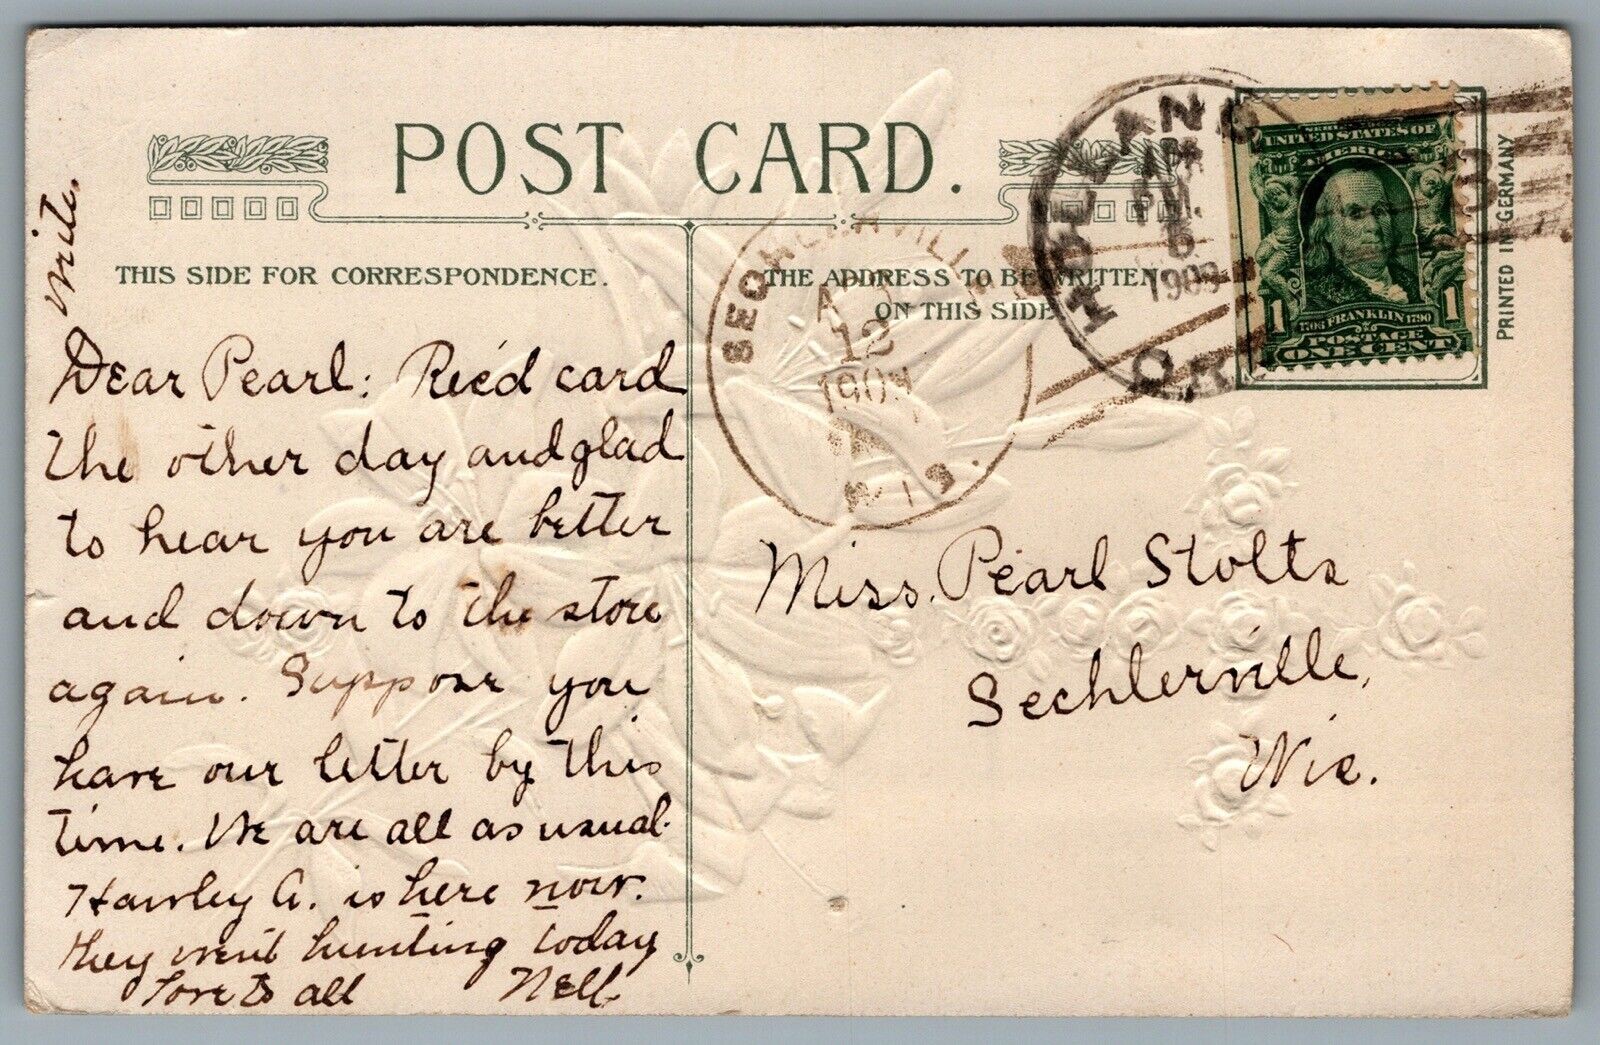 POST CARD.
THIS SIDE FOR CORRESPONDENCE.
THE ADDRESS TO BE WRITTEN
ON THIS SIDE
PRINTED IN GERMANY
Write.
Dear Pearl: Rec'd card
the other day and glad
to hear you are better
and down to the store
again. Suppose you
have our letter by this
time. We are all as usual.
Hawley A. is here now.
they went hunting today
Love to all Nell.
Miss. Pearl Stolts
Sechlerville,
Wis.
12
1909
WIS.
6
1909
ORE
UNITED STATES OF
AMERICA
1 1
1706 FRANKLIN 1790
POSTAGE
ONE CENT